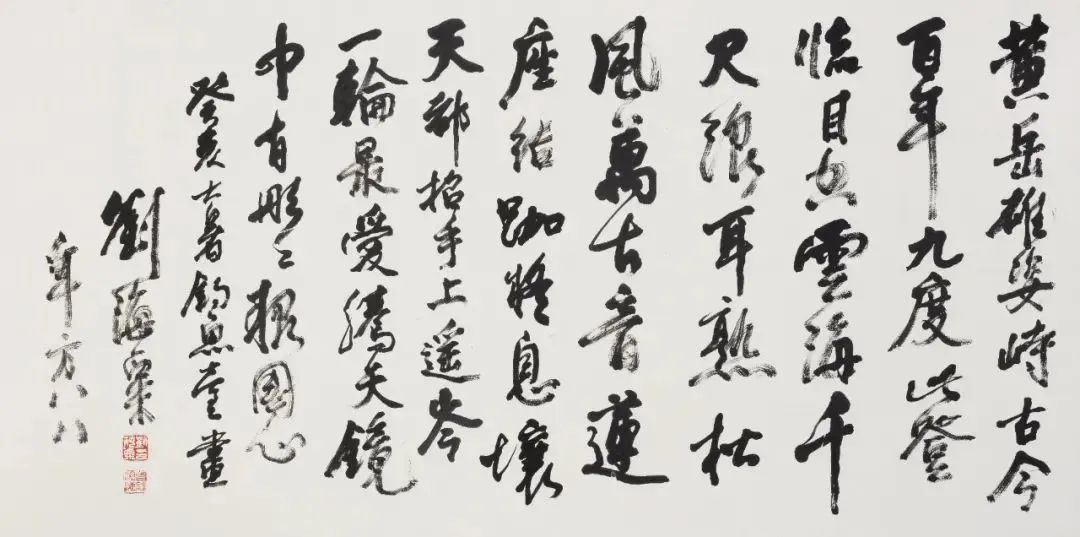 黃岳雄姿峙古今
百年九度此登
臨目空雲海千
尺浪耳熟松
風萬古音蓮
座結跏息壤
天都招手上遥岑
一輪最愛騰天鏡
中有彤彤報國心
癸亥大暑書
劉海粟
年方八八